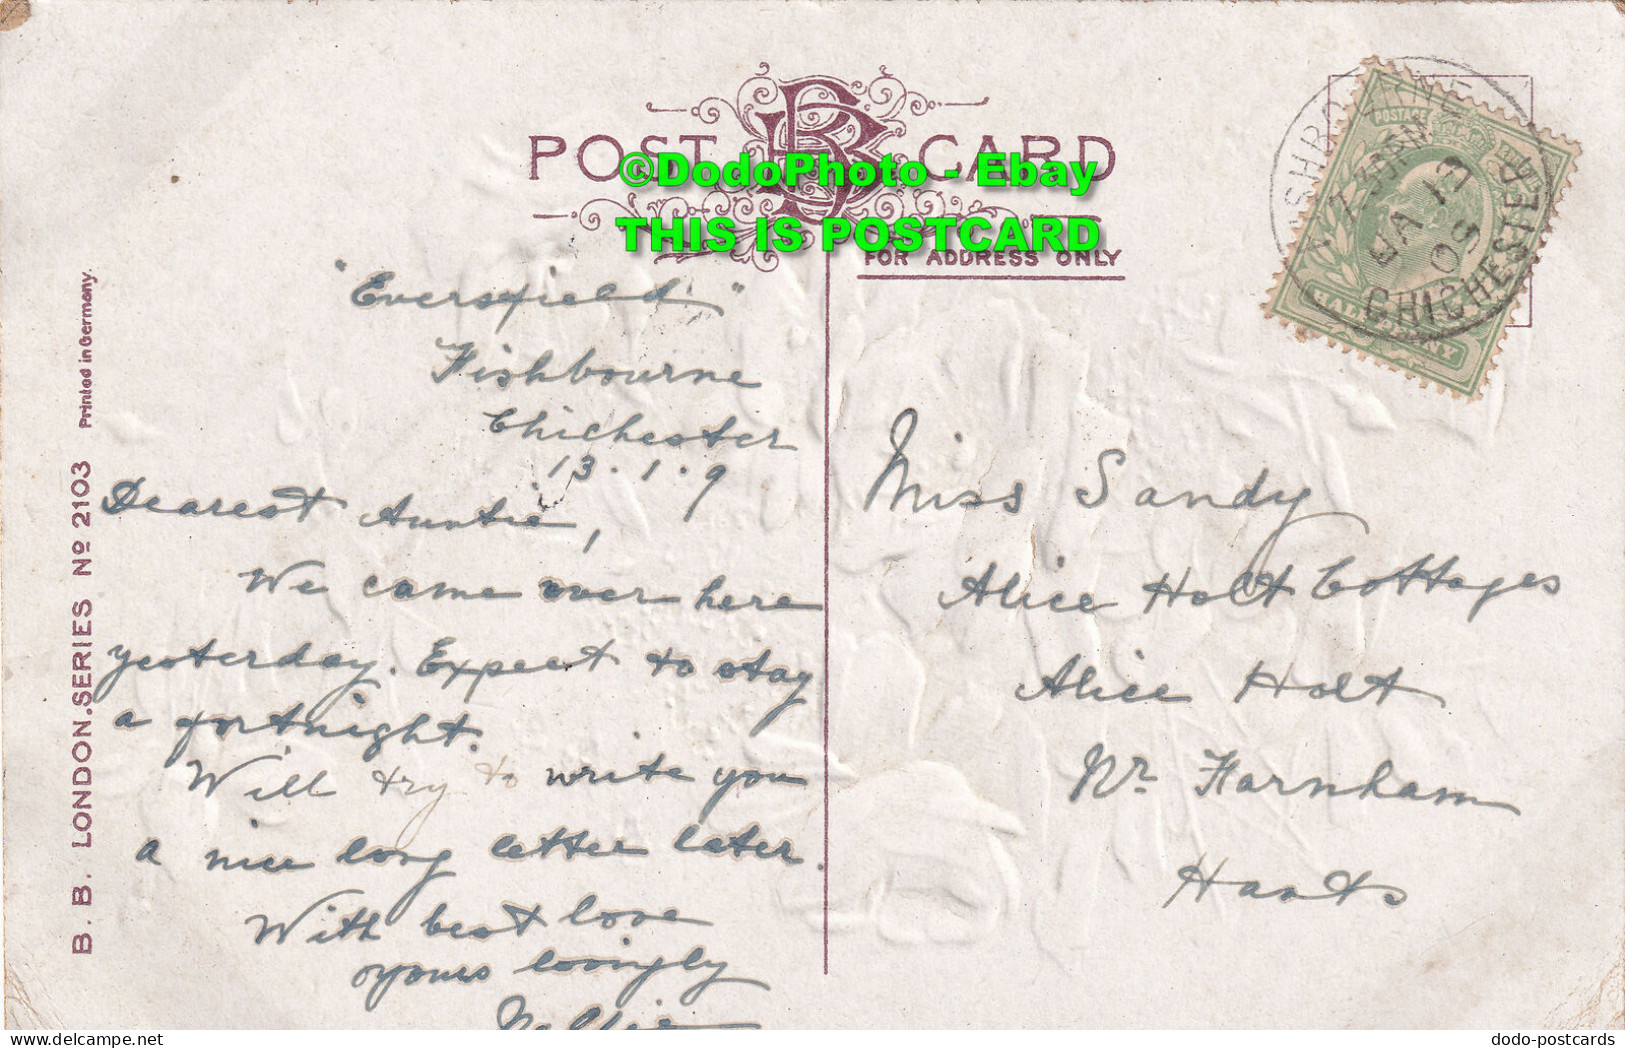 POST CARD
FOR ADDRESS ONLY
©DodoPhoto - Ebay
THIS IS POSTCARD
B. B. LONDON. SERIES Nº 2103 Printed in Germany.
"Eversfield"
Fishbourne
Chichester
13.1.9
Dearest Auntie,
We came over here
yesterday. Expect to stay
a fortnight.
Will try to write you
a nice long letter later.
With best love
yours lovingly
Nellie
POSTAGE
HALFPENNY
CHICHESTER
JA 13
09
Miss Sandy
Alice Holt Cottages
Alice Holt
Nr. Farnham
Hants
dodo-postcards